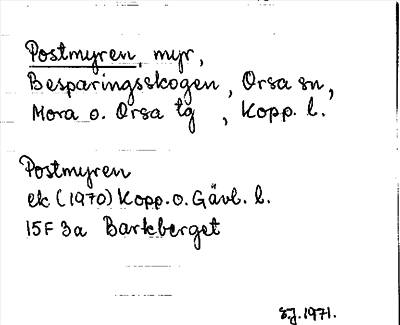 Postmyren, myr,
Besparingsskogen, Orsa sn,
Mora o. Orsa tg, Kopp. l.
Postmyren
ek (1970) Kopp. o. Gävl. l.
15F 3a Barkberget
S.J. 1971.